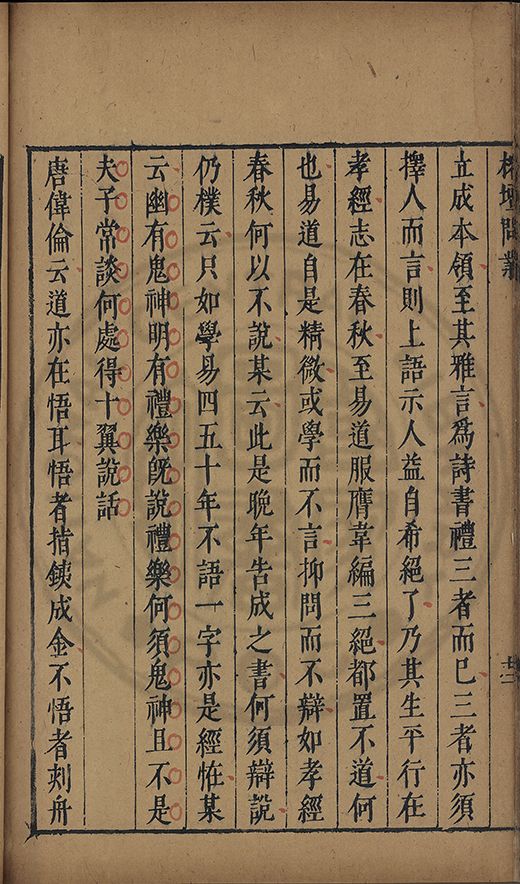 榕壇問業
立成本領至其雅言爲詩書禮三者而已三者亦須
擇人而言則上語示人益自希絕了乃其生平行在
孝經志在春秋至易道服膺韋編三絕都置不道何
也易道自是精微或學而不言抑問而不辯如孝經
春秋何以不說某云此是晚年告成之書何須辯說
仍樸云只如學易四五十年不語一字亦是經怪某
云幽有鬼神明有禮樂旣說禮樂何須鬼神且不是
夫子常談何處得十翼說話
唐偉倫云道亦在悟耳悟者指鐵成金不悟者刻舟